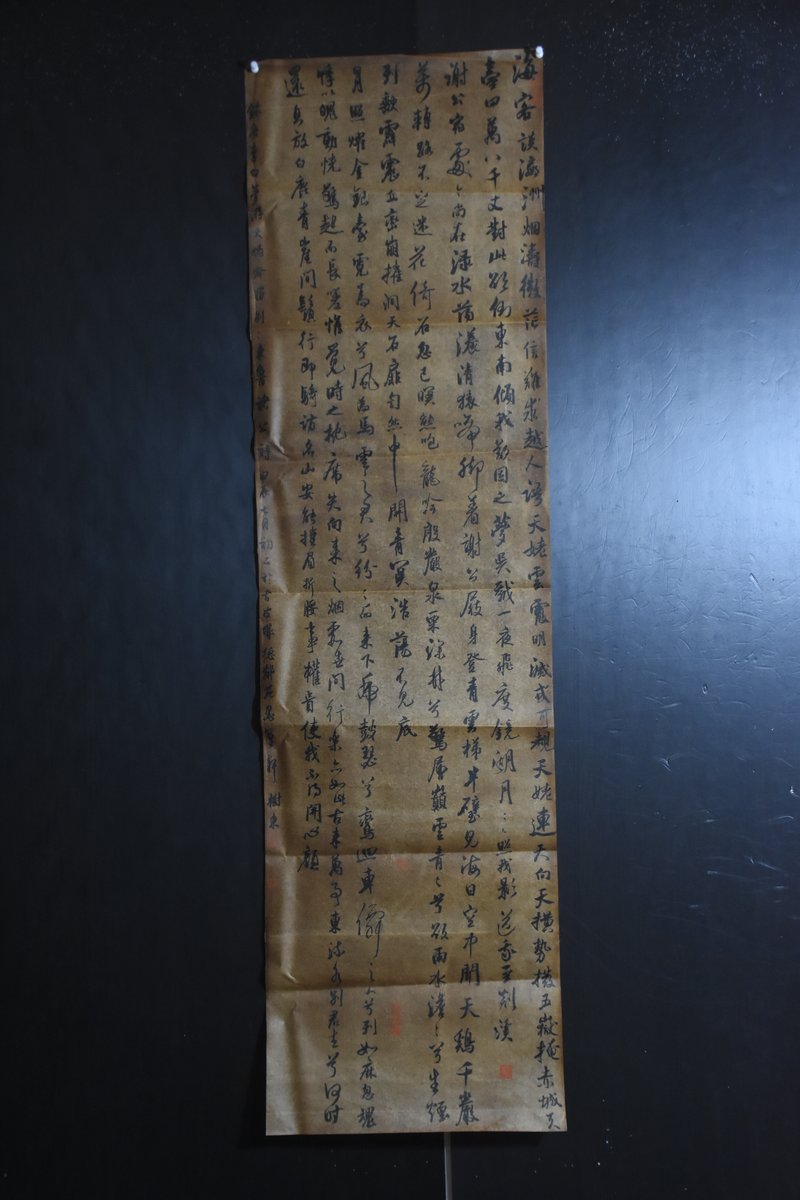 海客談瀛洲烟濤微茫信難求越人語天姥雲霓明滅或可覩天姥連天向天橫勢拔五嶽掩赤城天
臺四萬八千丈對此欲倒東南傾我欲因之夢吳越一夜飛度鏡湖月〻照我影送我至剡溪
謝公宿處〻尚在渌水蕩漾清猿啼脚着謝公屐身登青雲梯半壁見海日空中聞天鷄千巖
萬轉路不定迷花倚石忽已暝熊咆龍吟殷巖泉栗深林兮驚層巔雲青〻兮欲雨水澹〻兮生煙
列缺霹靂丘巒崩摧洞天石扉訇然中開青冥浩蕩不見底
月照耀金銀臺霓為衣兮風為馬雲之君兮紛〻而來下虎鼓瑟兮鸞迴車僊之人兮列如麻忽魂
悸以魄動怳驚起而長嗟惟覺時之枕席失向來之烟霞世間行樂亦如此古來萬事東流水別君去兮何時
還且放白鹿青崖間鬚行即騎訪名山安能摧眉折腰事權貴使我不得開心顏
錄唐李白夢游天姥吟留別 東魯諸公 時 樹東